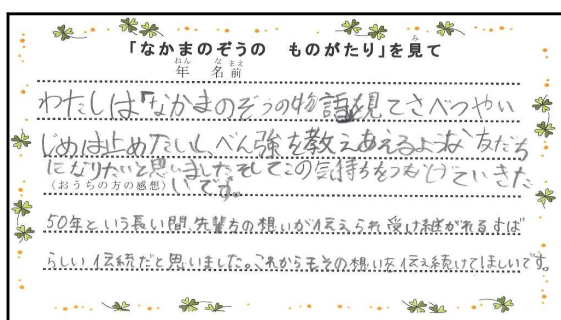 「なかまのぞうの ものがたり」を見て
年 名前
わたしは「なかまのぞうの物語見てさべつやい
じめは止めたいし、べん強を教えあえるような友だち
になりたいと思いましたそしてこの気持ちをつなげていきた
いです。
(おうちの方の感想)
50年という長い間、先輩方の想いが伝えられ受け継がれるすば
らしい伝統だと思いました。これからもその想いを伝え続けてほしいです。